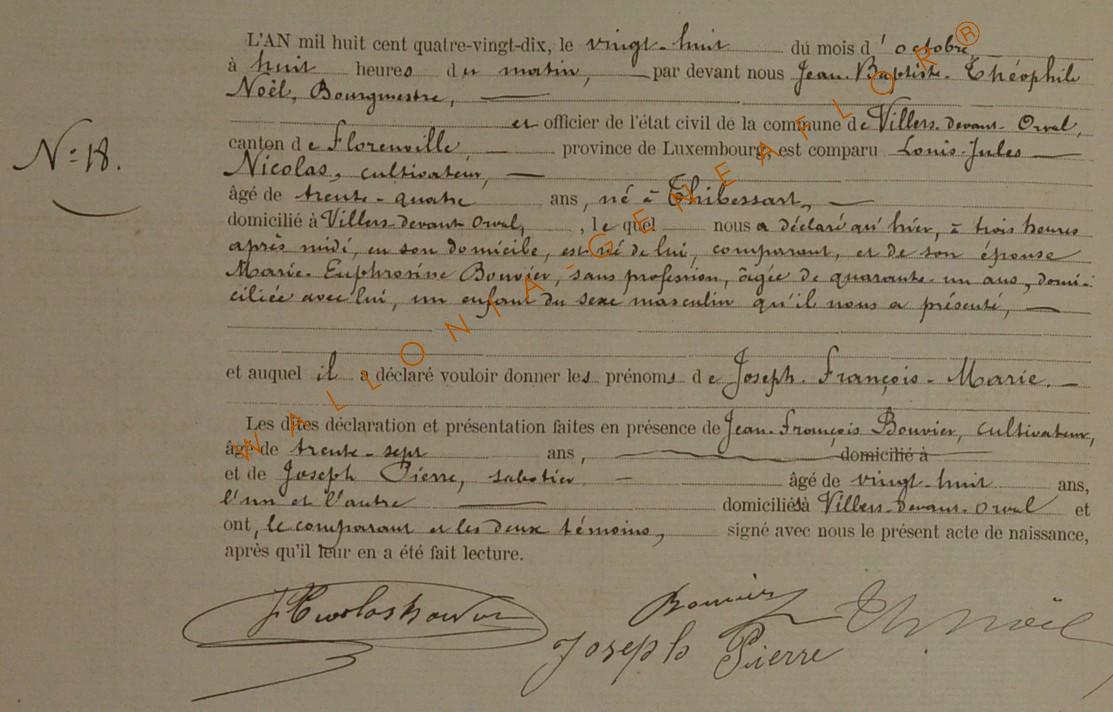 L'AN mil huit cent quatre-vingt-dix, le vingt-huit du mois d'octobre
à huit heures du matin, par devant nous Jean-Baptiste-Théophile
Noël, Bourgmestre,
et officier de l'état civil de la commune de Villers-devant-Orval,
N° 18.
canton de Florenville, province de Luxembourg, est comparu Louis-Jules
Nicolas, cultivateur,
âgé de trente-quatre ans, né à Thibessart,
domicilié à Villers-devant-Orval, , lequel nous a déclaré qu'hier, à trois heures
après midi, en son domicile, est né de lui, comparant, et de son épouse
Marie-Euphrosine Bouvier, sans profession, âgée de quarante-un ans, domi-
ciliée avec lui, un enfant du sexe masculin qu'il nous a présenté,
et auquel il a déclaré vouloir donner les prénoms de Joseph-François-Marie.
Les dites déclaration et présentation faites en présence de Jean-François Bouvier, cultivateur,
âgé de trente-sept ans, domicilié à
et de Joseph Pierre, sabotier âgé de vingt-huit ans,
l'un et l'autre domiciliés à Villers-devant-Orval et
ont, le comparant et les deux témoins, signé avec nous le présent acte de naissance,
après qu'il leur en a été fait lecture.
Bouvier Th Noël
Joseph Pierre
WALLONIA-GENEAFLOR®